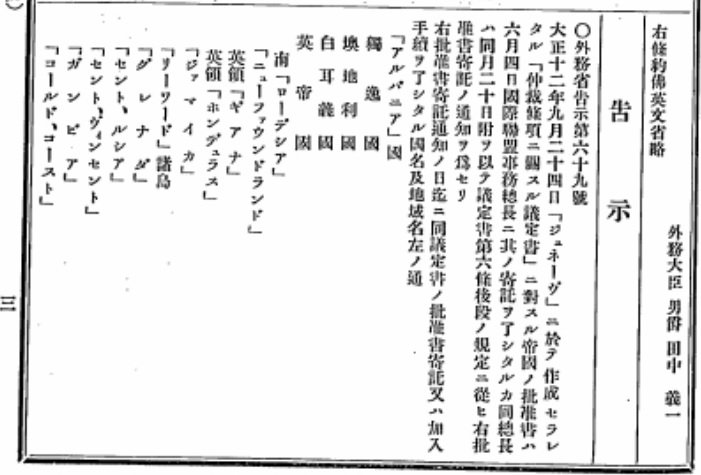 右條約佛英文省略
外務大臣 男爵 田中 義一
告示
〇外務省告示第六十九號
大正十二年九月二十四日「ジュネーヴ」ニ於テ作成セラレ
タル「仲裁條項ニ關スル議定書」ニ對スル帝國ノ批准書ハ
六月四日國際聯盟事務總長ニ其ノ寄託ヲ了シタルカ同總長
ハ同月二十日附ヲ以テ議定書第六條後段ノ規定ニ從ヒ右批
准書寄託ノ通知ヲ爲セリ
右批准書寄託通知ノ日迄ニ同議定書ノ批准書寄託又ハ加入
手續ヲ了シタル國名及地域名左ノ通
「アルバニア」國
獨逸國
墺地利國
白耳義國
英帝國
南「ローデシア」
「ニューファウンドランド」
英領「ギアナ」
英領「ホンデュラス」
「ジァマイカ」
「リーワード」諸島
「グレナダ」
「セント、ルシア」
「セント、ヴィンセント」
「ガンビア」
「ゴールド、コースト」
三